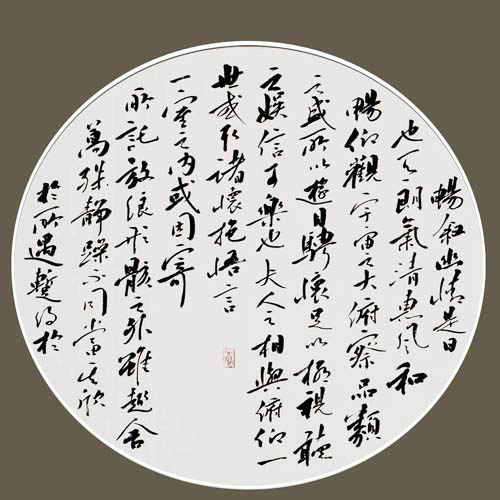 暢叙幽情是日
也天朗氣清惠風和
暢仰觀宇宙之大俯察品類
之盛所以遊目騁懷足以極視聽
之娛信可樂也夫人之相與俯仰一
世或取諸懷抱悟言
一室之內或因寄
所託放浪形骸之外雖趣舍
萬殊靜躁不同當其欣
於所遇暫得於